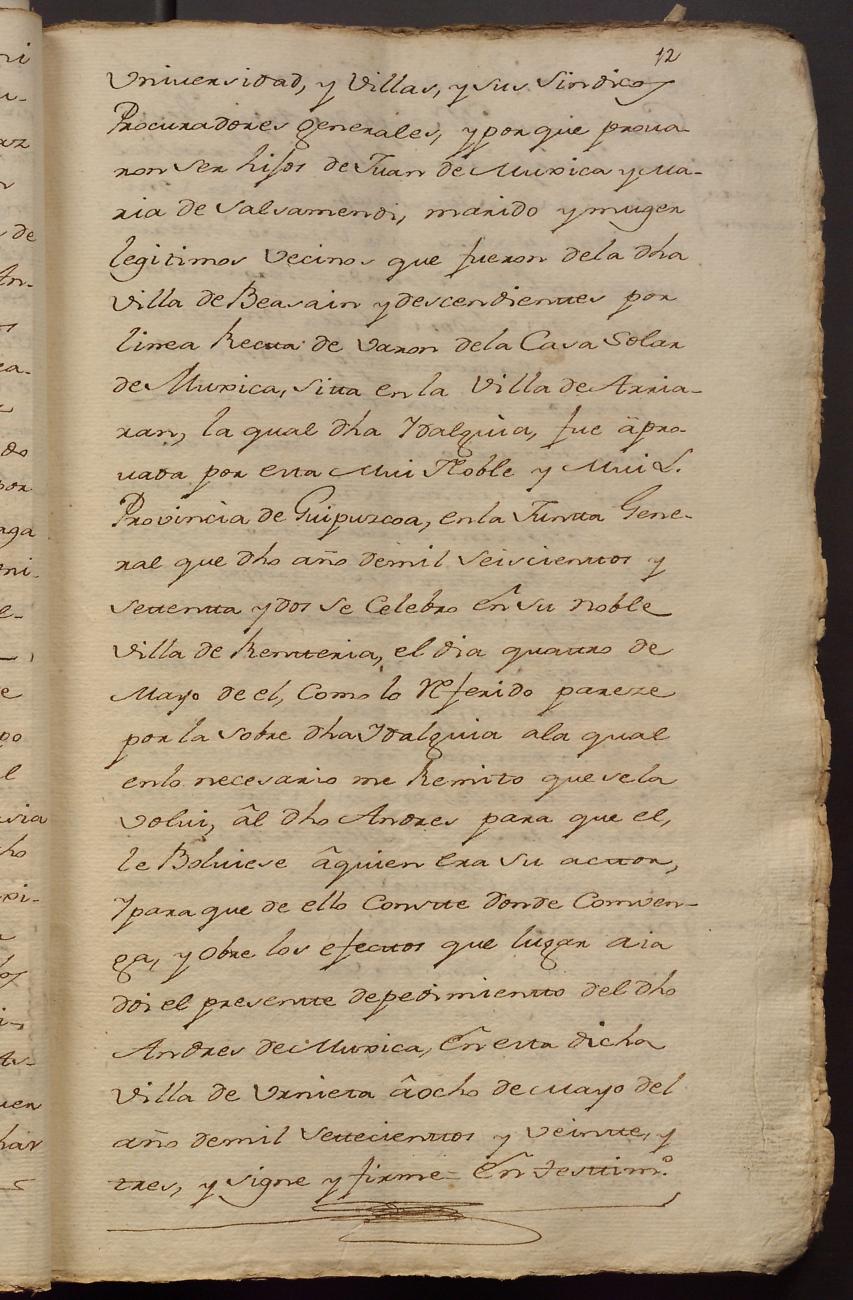 12
Vniversidad, y Villas, y sus Sindicos
Procuradores generales, y porque prova-
ron ser hijos de Juan de Muxica y Ma-
ria de Salsamendi, marido y muger
legitimos Vecinos que fueron dela dha
Villa de Beasain y descendientes por
linea Recta de varon dela Casa Solar
de Muxica, sitta en la Villa de Arria-
ran, la qual dha Ydalguia, fue apro-
vada por esta Mui Noble y Mui L.
Provincia de Guipuzcoa, en la Juntta Gene-
ral que dho año de mil seiscienttos y
settentta y dos se Celebro en su noble
Villa de Rentteria, el dia quattro de
Mayo de el, Como lo Referido pareze
por la sobre dha Ydalguia ala qual
enlo necesario me Remito que se la
volvi, al dho Andres para que el,
le Bolviese a quien era su acttor,
Y para que de ello Constte donde Comven-
ga, y obre los efecttos que lugar aia
doi el presentte de pedimientto del dho
Andres de Muxica, en esta dicha
Villa de Vrnieta a ocho de Mayo del
año de mil Settecienttos y veintte, y
tres, y signe y firme = En testtimº.